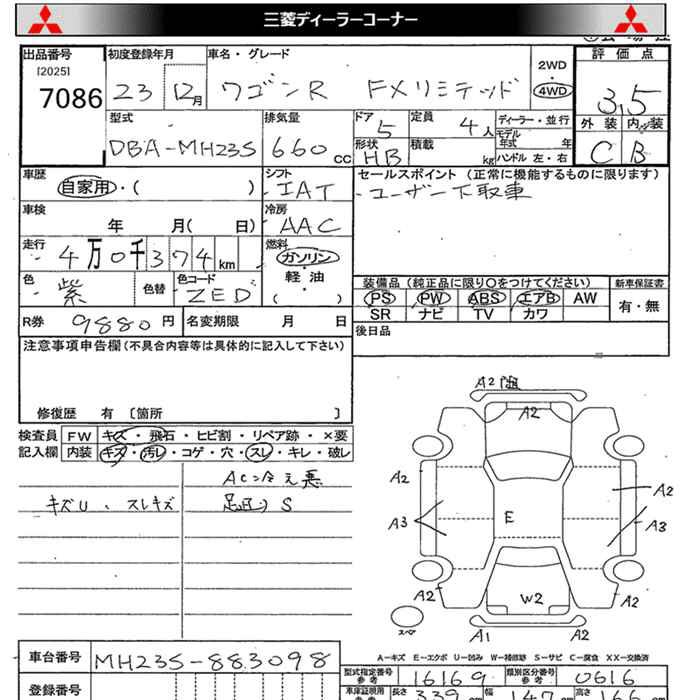 三菱ディーラーコーナー
出品番号
[2025]
7086
初度登録年月
23 12月
車名・グレード
ワゴンR FXリミテッド
2WD
4WD
評価点
3.5
外装 内装
C B
型式
DBA-MH23S
排気量
660 cc
ドア
5
定員
4人
ディーラー・並行
モデル
年式 年
形状
HB
積載
kg
ハンドル 左・右
車歴
自家用・( )
シフト
IAT
セールスポイント (正常に機能するものに限ります)
・ユーザー下取車
車検
年 月( 日)
冷房
AAC
走行
4万0千374km
燃料
ガソリン・
軽油
・( )
色
紫
色替
色コード
ZED
装備品 (純正品に限り○をつけてください)
PS PW ABS エアB AW
SR ナビ TV カワ
新車保証書
有・無
R券 9880円
名変期限 月 日
後日品
注意事項申告欄(不具合内容等は具体的に記入して下さい)
修復歴 有 [箇所 ]
検査員
記入欄
FW キズ・飛石・ヒビ割・リペア跡・×要
内装 キズ・汚レ・コゲ・穴・スレ・キレ・破レ
AC冷え悪
キズU、スレキズ
足回りS
A2
A2
A2
A2
A3
A3
E
A2
W2
A2
スペア
A1
A2
A…キズ E…エクボ U…凹み W…補修跡 S…サビ C…腐食 XX…交換済
車台番号 MH23S-883098
型式指定番号
参考
16169
類別区分番号
参考
0616
登録番号
車庫証明用
参考
長さ 339 cm
幅 147 cm
高さ 166 cm